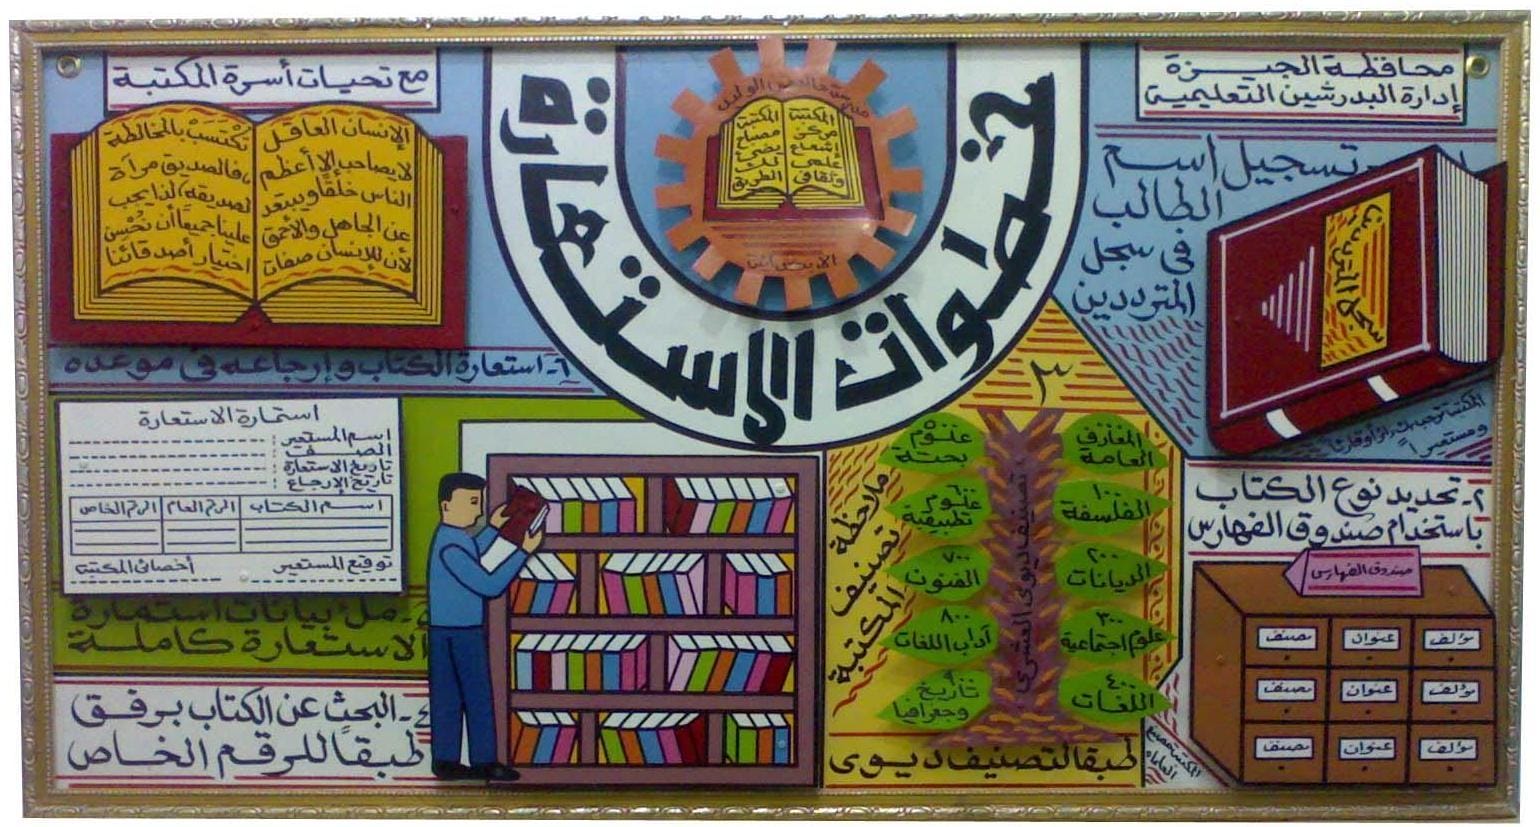 محافظة الجيزة
إدارة البدرشين التعليمية
خطوات الاستعارة
مع تحيات أسرة المكتبة
المكتبة
مركز
إشعاع
علمى
وثقافى
المكتبة
مصباح
يضئ
لك
الطريق
الإنسان العاقل
لا يصاحب إلا أعظم
الناس خلقًا ويبتعد
عن الجاهل والأحمق
لأن للإنسان صفات
تكتسب بالمخالطة
فالصديق مرآة
لصديقه لذا يجب
علينا جميعًا أن نُحْسن
اختيار أصدقائنا
تسجيل اسم
الطالب
فى سجل
المترددين
سجل المترددين
٢- تحديد نوع الكتاب
باستخدام صندوق الفهارس
صندوق الفهارس
مؤلف
عنوان
مصنف
مؤلف
عنوان
مصنف
مؤلف
عنوان
مصنف
٣
ملاحظة
تصنيف
المكتبة
تصنيف ديوى العشرى
المعارف
العامة
١٠٠
الفلسفة
٢٠٠
الديانات
٣٠٠
علوم اجتماعية
٤٠٠
اللغات
علوم
بحتة
علوم
تطبيقية
٧٠٠
الفنون
٨٠٠
آداب اللغات
تاريخ
وجغرافيا
طبقا لتصنيف ديوى
٤- البحث عن الكتاب برفق
طبقاً للرقم الخاص
ملئ بيانات استمارة
الاستعارة كاملة
استمارة الاستعارة
اسم المستعير :
الصف :
تاريخ الاستعارة :
تاريخ الإرجاع :
اسم الكتاب
الرقم العام
الرقم الخاص
توقيع المستعير
أخصائى المكتبة
٦- استعارة الكتاب وإرجاعه فى موعده